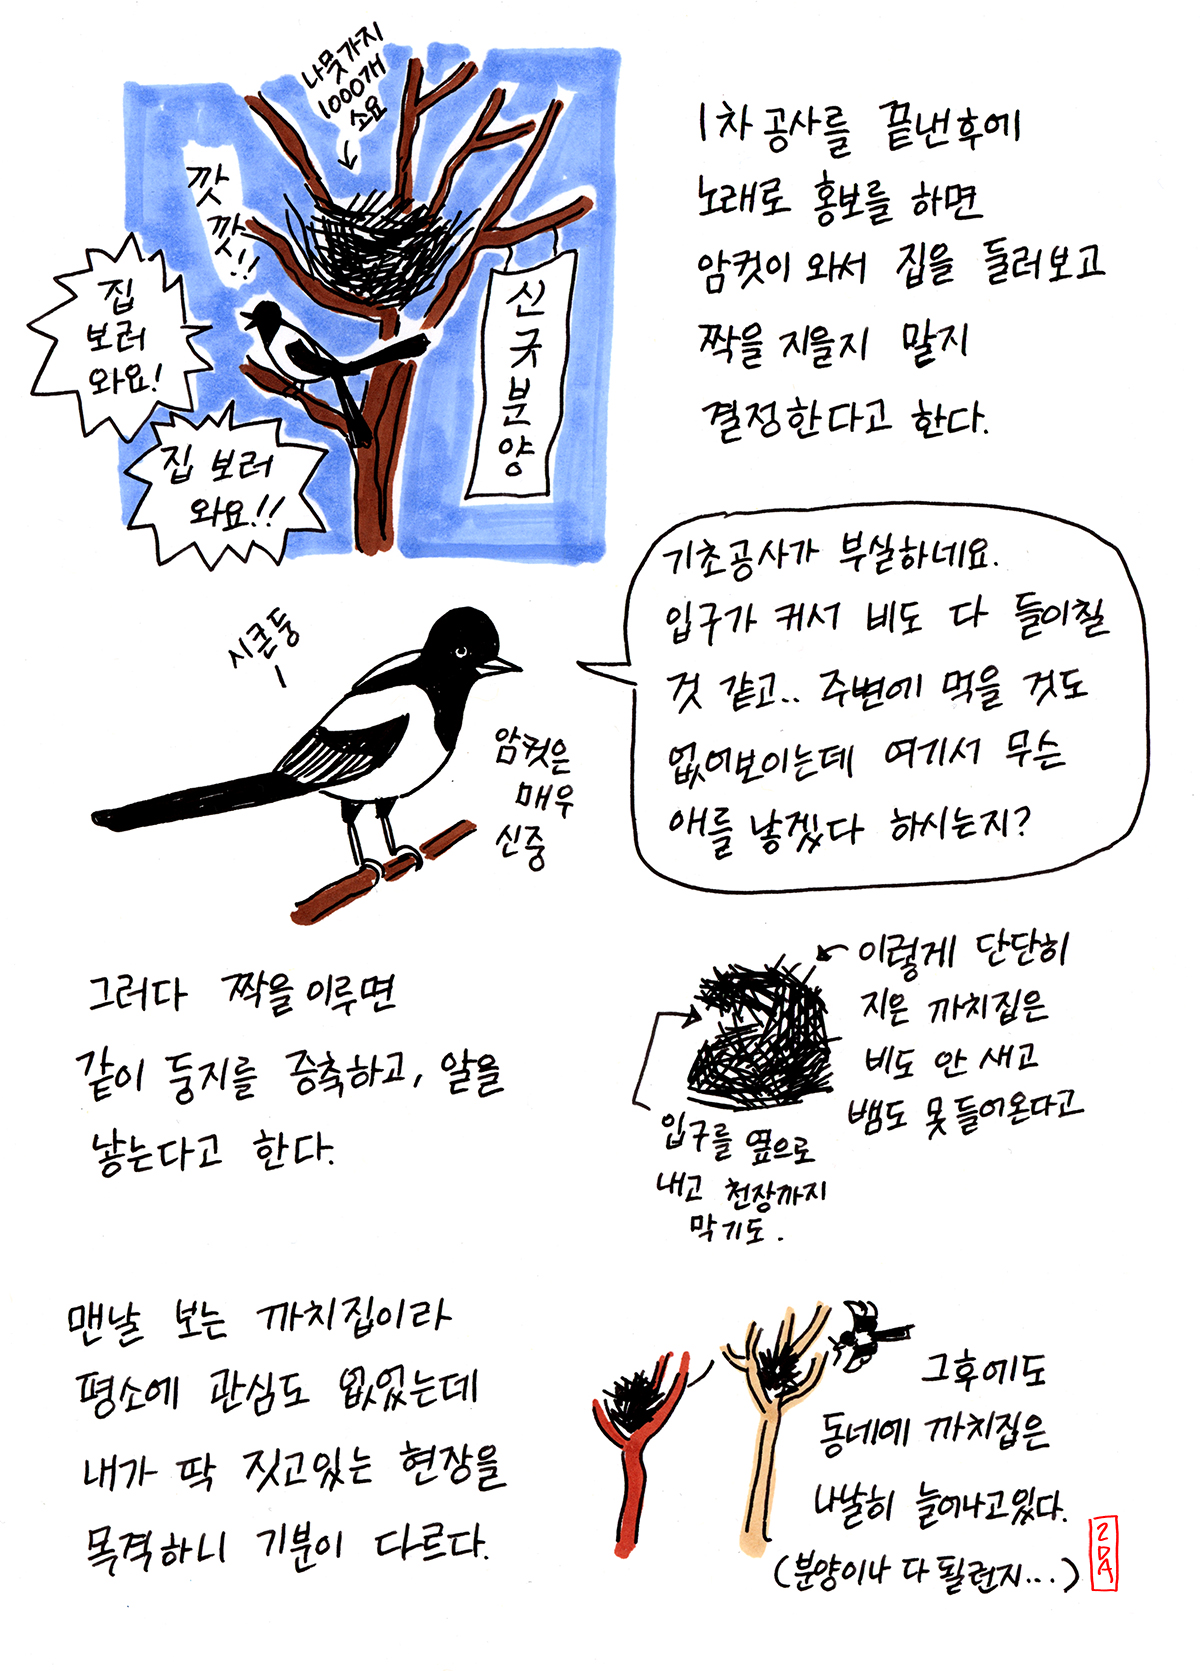 나뭇가지
1000개
소요
깟
깟!!
집
보러
와요!
집 보러
와요!!
신규분양
1차 공사를 끝낸후에
노래로 홍보를 하면
암컷이 와서 집을 둘러보고
짝을 지을지 말지
결정한다고 한다.
기초공사가 부실하네요.
입구가 커서 비도 다 들이칠
것 같고.. 주변에 먹을 것도
없어보이는데 여기서 무슨
애를 낳겠다 하시는지?
시큰둥
암컷은
매우
신중
그러다 짝을 이루면
같이 둥지를 증축하고, 알을
낳는다고 한다.
이렇게 단단히
지은 까치집은
비도 안 새고
뱀도 못 들어온다고
입구를 옆으로
내고 천장까지
막기도.
맨날 보는 까치집이라
평소에 관심도 없었는데
내가 딱 짓고있는 현장을
목격하니 기분이 다르다.
그후에도
동네에 까치집은
나날히 늘어나고있다.
(분양이나 다 될런지...)
2DA